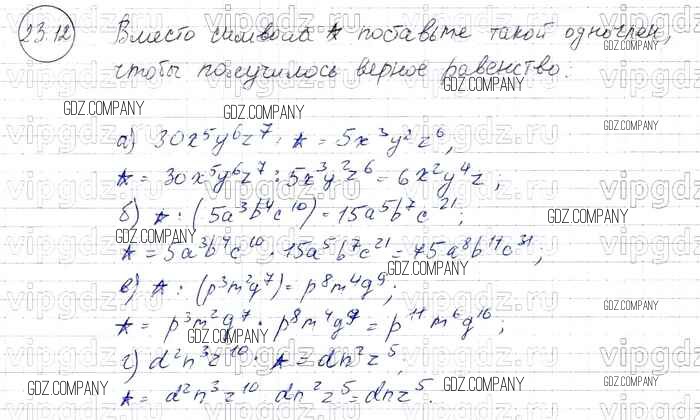 23.12 Вместо символа ★ поставьте такой одночлен,
чтобы получилось верное равенство.
GDZ.COMPANY GDZ.COMPANY GDZ.COMPANY
а) 30x⁵y⁶z⁷ : ★ = 5x³y²z⁶;
★ = 30x⁵y⁶z⁷ : 5x³y²z⁶ = 6x²y⁴z;
б) ★ : (5a³b⁴c¹⁰) = 15a⁵b⁷c²¹;
GDZ.COMPANY GDZ.COMPANY
★ = 5a³b⁴c¹⁰ · 15a⁵b⁷c²¹ = 75a⁸b¹¹c³¹;
GDZ.COMPANY
в) ★ : (p³m²g⁷) = p⁸m⁴g⁹;
★ = p³m²g⁷ · p⁸m⁴g⁹ = p¹¹m⁶g¹⁶;
GDZ.COMPANY
г) d²n³z¹⁰ : ★ = dn²z⁵;
GDZ.COMPANY GDZ.COMPANY GDZ.COMPANY
★ = d²n³z¹⁰ : dn²z⁵ = dnz⁵.
vipgdz.ru